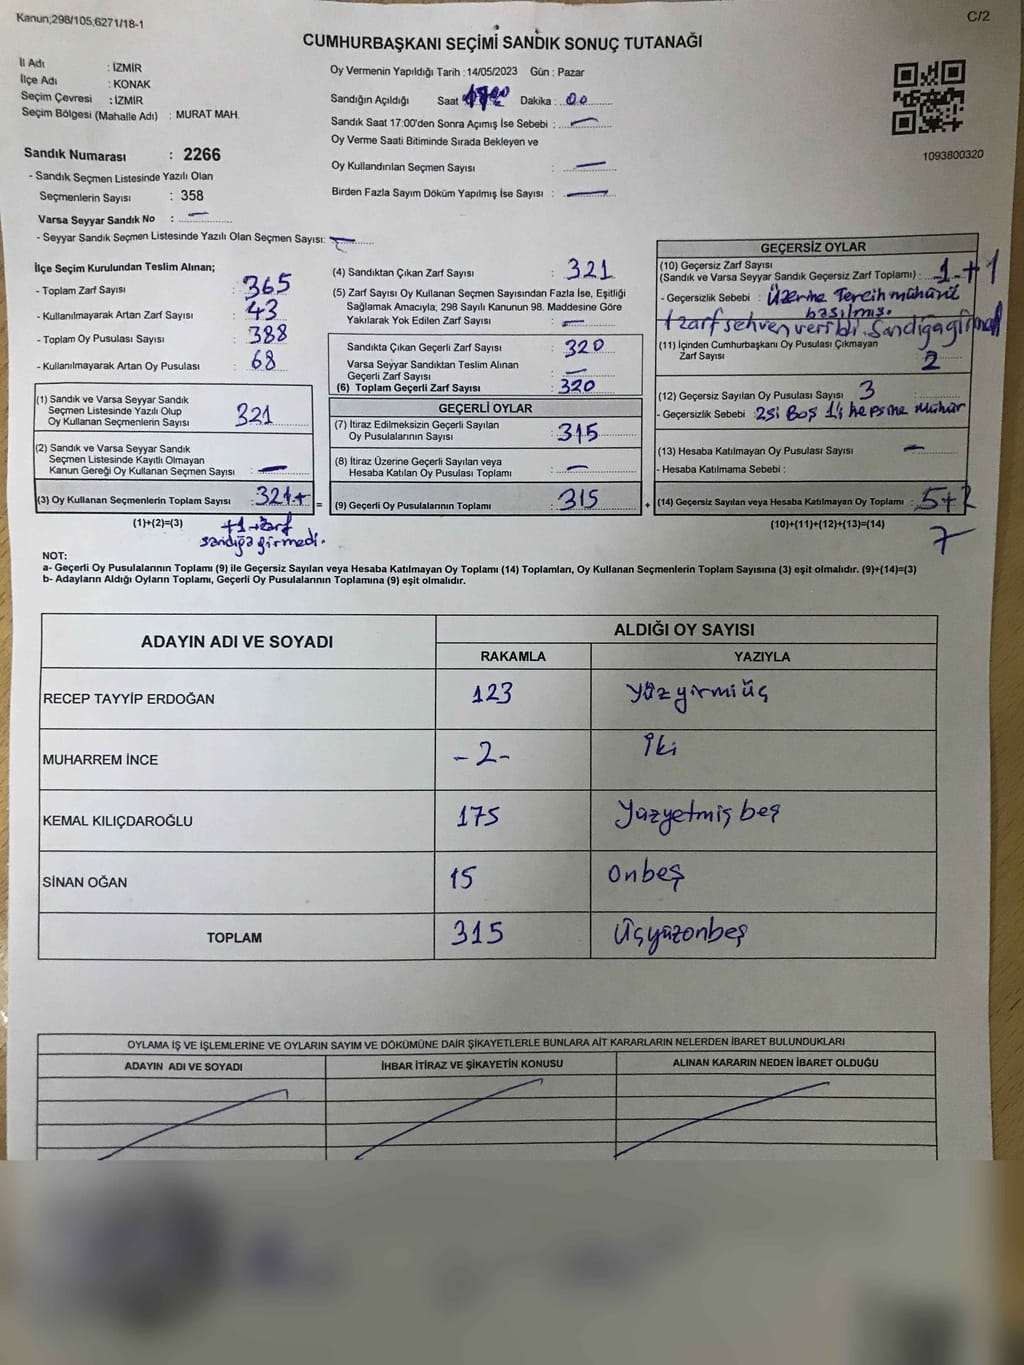 Kanun;298/105;6271/18-1
C/2
CUMHURBAŞKANI SEÇİMİ SANDIK SONUÇ TUTANAĞI
İl Adı : İZMİR
İlçe Adı : KONAK
Seçim Çevresi : İZMİR
Seçim Bölgesi (Mahalle Adı) : MURAT MAH.
Sandık Numarası : 2266
- Sandık Seçmen Listesinde Yazılı Olan
Seçmenlerin Sayısı : 358
Varsa Seyyar Sandık No : —
- Seyyar Sandık Seçmen Listesinde Yazılı Olan Seçmen Sayısı: —
Oy Vermenin Yapıldığı Tarih : 14/05/2023 Gün : Pazar
Sandığın Açıldığı Saat Dakika : 00
Sandık Saat 17:00'den Sonra Açımış İse Sebebi : —
Oy Verme Saati Bitiminde Sırada Bekleyen ve
Oy Kullandırılan Seçmen Sayısı : —
Birden Fazla Sayım Döküm Yapılmış İse Sayısı : —
1093800320
İlçe Seçim Kurulundan Teslim Alınan;
- Toplam Zarf Sayısı : 365
- Kullanılmayarak Artan Zarf Sayısı : 43
- Toplam Oy Pusulası Sayısı : 388
- Kullanılmayarak Artan Oy Pusulası : 68
(1) Sandık ve Varsa Seyyar Sandık
Seçmen Listesinde Yazılı Olup
Oy Kullanan Seçmenlerin Sayısı : 321
(2) Sandık ve Varsa Seyyar Sandık
Seçmen Listesinde Kayıtlı Olmayan
Kanun Gereği Oy Kullanan Seçmen Sayısı : —
(3) Oy Kullanan Seçmenlerin Toplam Sayısı : 321+
(1)+(2)=(3)
+1 zarf
sandığa girmedi.
(4) Sandıktan Çıkan Zarf Sayısı : 321
(5) Zarf Sayısı Oy Kullanan Seçmen Sayısından Fazla İse, Eşitliği
Sağlamak Amacıyla, 298 Sayılı Kanunun 98. Maddesine Göre
Yakılarak Yok Edilen Zarf Sayısı : —
Sandıkta Çıkan Geçerli Zarf Sayısı : 320
Varsa Seyyar Sandıktan Teslim Alınan
Geçerli Zarf Sayısı : —
(6) Toplam Geçerli Zarf Sayısı : 320
GEÇERLİ OYLAR
(7) İtiraz Edilmeksizin Geçerli Sayılan
Oy Pusulalarının Sayısı : 315
(8) İtiraz Üzerine Geçerli Sayılan veya
Hesaba Katılan Oy Pusulası Toplamı : —
= (9) Geçerli Oy Pusulalarının Toplamı : 315 +
GEÇERSİZ OYLAR
(10) Geçersiz Zarf Sayısı
(Sandık ve Varsa Seyyar Sandık Geçersiz Zarf Toplamı) : 1+1
- Geçersizlik Sebebi : Üzerine Tercih mühürü
basılmış.
1 zarf sehven verildi. Sandığa girmedi
(11) İçinden Cumhurbaşkanı Oy Pusulası Çıkmayan
Zarf Sayısı : 2
(12) Geçersiz Sayılan Oy Pusulası Sayısı : 3
- Geçersizlik Sebebi : 2si Boş 1'i hepsine mühür
(13) Hesaba Katılmayan Oy Pusulası Sayısı : —
- Hesaba Katılmama Sebebi :
(14) Geçersiz Sayılan veya Hesaba Katılmayan Oy Toplamı : 5+2
(10)+(11)+(12)+(13)=(14)
7
NOT:
a- Geçerli Oy Pusulalarının Toplamı (9) ile Geçersiz Sayılan veya Hesaba Katılmayan Oy Toplamı (14) Toplamları, Oy Kullanan Seçmenlerin Toplam Sayısına (3) eşit olmalıdır. (9)+(14)=(3)
b- Adayların Aldığı Oyların Toplamı, Geçerli Oy Pusulalarının Toplamına (9) eşit olmalıdır.
ADAYIN ADI VE SOYADI
ALDIĞI OY SAYISI
RAKAMLA YAZIYLA
RECEP TAYYİP ERDOĞAN 123 Yüzyirmiüç
MUHARREM İNCE -2- İki
KEMAL KILIÇDAROĞLU 175 Yüzyetmiş beş
SİNAN OĞAN 15 Onbeş
TOPLAM 315 Üçyüzonbeş
OYLAMA İŞ VE İŞLEMLERİNE VE OYLARIN SAYIM VE DÖKÜMÜNE DAİR ŞİKAYETLERLE BUNLARA AİT KARARLARIN NELERDEN İBARET BULUNDUKLARI
ADAYIN ADI VE SOYADI İHBAR İTİRAZ VE ŞİKAYETİN KONUSU ALINAN KARARIN NEDEN İBARET OLDUĞU